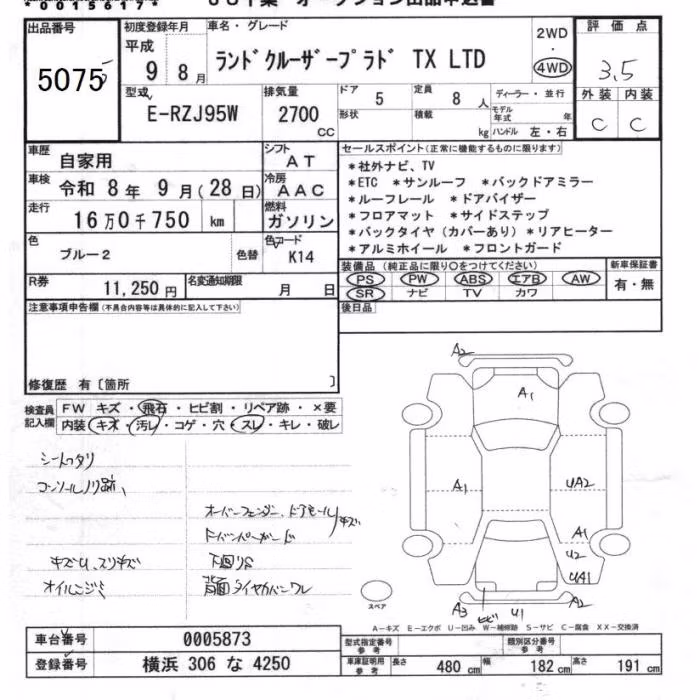 00156174 JU千葉 オークション出品申込書
出品番号 初度登録年月 車名・グレード 2WD・4WD 評価点
5075 平成 9 8月 ランドクルーザープラド TX LTD 3.5
型式 E-RZJ95W 排気量 2700 cc ドア 5 定員 8 人 ディーラー・並行 外装 内装
形状 積載 kg モデル年式 年 ハンドル 左・右 C C
車歴 自家用 シフト AT セールスポイント(正常に機能するものに限ります)
車検 令和 8年 9月(28日) 冷房 AAC *社外ナビ、TV
*ETC *サンルーフ *バックドアミラー
走行 16万0千750 km 燃料 ガソリン *ルーフレール *ドアバイザー
*フロアマット *サイドステップ
*バックタイヤ(カバーあり)*リアヒーター
色 ブルー2 色替 色コード K14 *アルミホイール *フロントガード
装備品(純正品に限り○をつけてください) 新車保証書
R券 11,250円 名変通知期限 月 日 PS PW ABS エアB AW 有・無
SR ナビ TV カワ
注意事項申告欄(不具合内容等は具体的に記入して下さい) 後日品
修復歴 有〔箇所 〕
検査員記入欄 FW キズ・飛石・ヒビ割・リペア跡・×要
内装・キズ・汚レ・コゲ・穴・スレ・キレ・破レ
シートヘタリ
コンソールノリ跡、
オーバーフェンダー、ドアモールキズ
キズU、スリキズ 下回りS
オイルニジミ 背面タイヤカバーワレ
A2
A1
A1 UA2
A1
U2
UA1
A3 ヒビ U1 A2
スペア
A-キズ E-エクボ U-凹み W-補修跡 S-サビ C-腐食 XX-交換済
車台番号 0005873 型式指定番号 参考 類別区分番号 参考
登録番号 横浜 306 な 4250 車庫証明用 参考 長さ 480 cm 幅 182 cm 高さ 191 cm